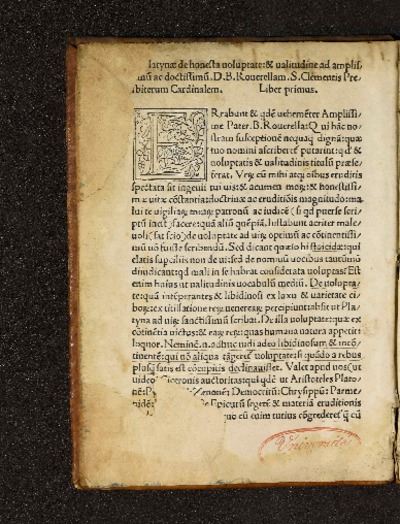 latynæ de honesta uoluptate: & ualitudine ad ampliſ
ſimū ac doctiſſimū .D.B. Rouerellam .S. Clementis Pre
ſbiterum Cardinalem. Liber primus.
ERrabunt & qdē uehemēter Ampliſſi
me Pater .B. Rouerella: Qui hāc no
ſtram ſuſceptionē nequaq̄ dignā: quæ
tuo nomini aſcriberet͛ putarint: qđ &
uoluptatis & ualitudinis titulū præſe
ferat. Veꝝ cū mihi atq; oībus eruditis
ſpectata ſit ingenii tui uis: & acumen moꝝ: & honeſtiſſi
mæ uitæ cōſtantia: doctrinæ ac eruditiōis magnitudo: ma
lui te uigiliaꝝ meaꝝ patronū ac iudicē (ſi qd puerſe ſcri
ptū
facere: quā aliū quēpiā. Inſtabunt acriter male
uoli (ſat ſcio) de uoluptate ad uiꝝ optimū ac cōtinentiſſi
mū nō fuiſſe ſcribendū. Sed dicant quæſo hi ſtoicidæ: qui
elatis ſupciliis non de ui: ſed de nominū uocibus tantūmō
diiudicant: qd mali in ſe habeat conſiderata uoluptas: Eſt
enim huius ut ualitudinis uocabulū mediū. De uolupta
te: quā intēperantes & libidinoſi ex luxu & uarietate ci
boꝝ: ex titillatione reꝝ uenereaꝝ percipiunt: abſit ut Pla
tyna ad uiꝝ ſanctiſſimū ſcribat. De illa uoluptate: quæ ex
cōtinētia uictus: & eaꝝ reꝝ: quas humana natura appetit:
loquor. Neminē.n. adhuc uidi adeo libidinoſum & incō
tinentē: qui nō aliqua tāgeret͛ uoluptate: ſi quādo a rebus
pluſq̄ ſatis eſt concupitis declinauiſſet. Valet apud nos (ut
uideo) Ciceronis auctoritas: qui qdē ut Ariſtoteles Plato
nē: P Zenonē: Democritū: Chryſippū: Parme
nidē: Epicurū ſegetē & materiā eruditionis
quo cū enim tutius cōgrederet͛ q̄ cū